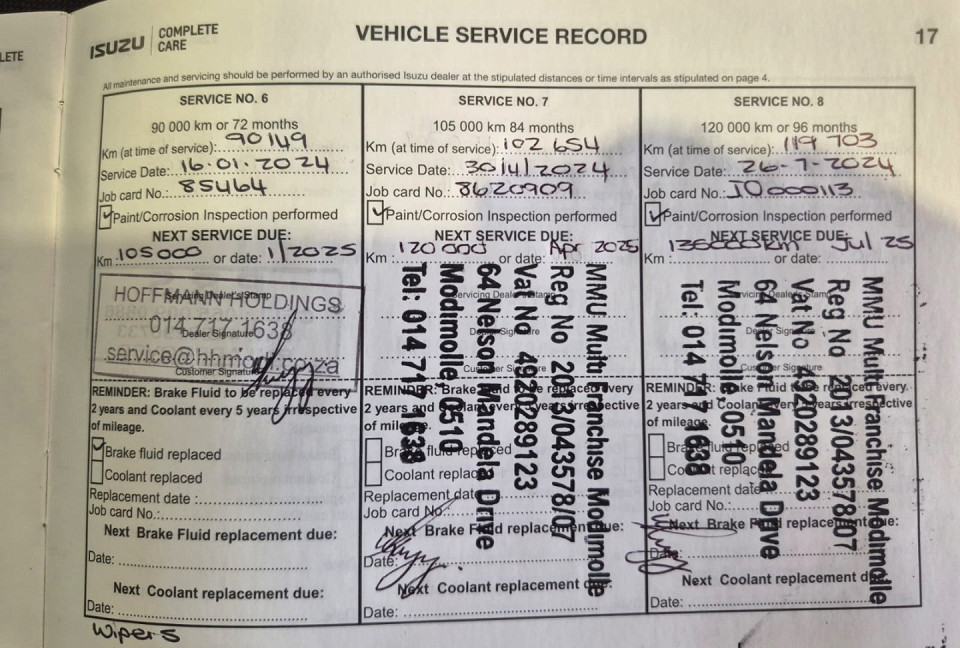 LETE
ISUZU COMPLETE CARE
VEHICLE SERVICE RECORD
17
All maintenance and servicing should be performed by an authorised Isuzu dealer at the stipulated distances or time intervals as stipulated on page 4.
SERVICE NO. 6
90 000 km or 72 months
Km (at time of service): 90149
Service Date: 16.01.2024
Job card No.: 85464
Paint/Corrosion Inspection performed
NEXT SERVICE DUE:
Km 105000 or date: 1/2025
HOFFMANN HOLDINGS
Servicing Dealer's Stamp
014 717 1638
Dealer Signature
service@hhmod.co.za
Customer Signature
REMINDER: Brake Fluid to be replaced every
2 years and Coolant every 5 years irrespective
of mileage.
Brake fluid replaced
Coolant replaced
Replacement date :
Job card No.:
Next Brake Fluid replacement due:
Date:
Next Coolant replacement due:
Date:
Wipers
SERVICE NO. 7
105 000 km 84 months
Km (at time of service): 102 654
Service Date: 30/4/2024
Job card No.: 8620909
Paint/Corrosion Inspection performed
NEXT SERVICE DUE:
Km : 120 000 or date: Apr 2025
Servicing Dealer's Stamp
Dealer Signature
Customer Signature
MMU Multi Franchise Modimolle
Reg No 2013/043578/07
Vat No 4920289123
64 Nelson Mandela Drive
Modimolle, 0510
Tel: 014 717 1638
REMINDER: Brake Fluid to be replaced every
2 years and Coolant every 5 years irrespective
of mileage.
Brake fluid replaced
Coolant replaced
Replacement date
Job card No.:
Next Brake Fluid replacement due:
Date:
Next Coolant replacement due:
Date:
SERVICE NO. 8
120 000 km or 96 months
Km (at time of service): 119 703
Service Date: 26-7-2024
Job card No.: J0000113
Paint/Corrosion Inspection performed
NEXT SERVICE DUE:
Km : km or date: Jul 25
Servicing Dealer's Stamp
Dealer Signature
Customer Signature
MMU Multi Franchise Modimolle
Reg No 2013/043578/07
Vat No 4920289123
64 Nelson Mandela Drive
Modimolle, 0510
Tel: 014 717 1638
REMINDER: Brake Fluid to be replaced every
2 years and Coolant every 5 years irrespective
of mileage.
Brake fluid replaced
Coolant replaced
Replacement date
Job card No.:
Next Brake Fluid replacement due:
Date:
Next Coolant replacement due:
Date: